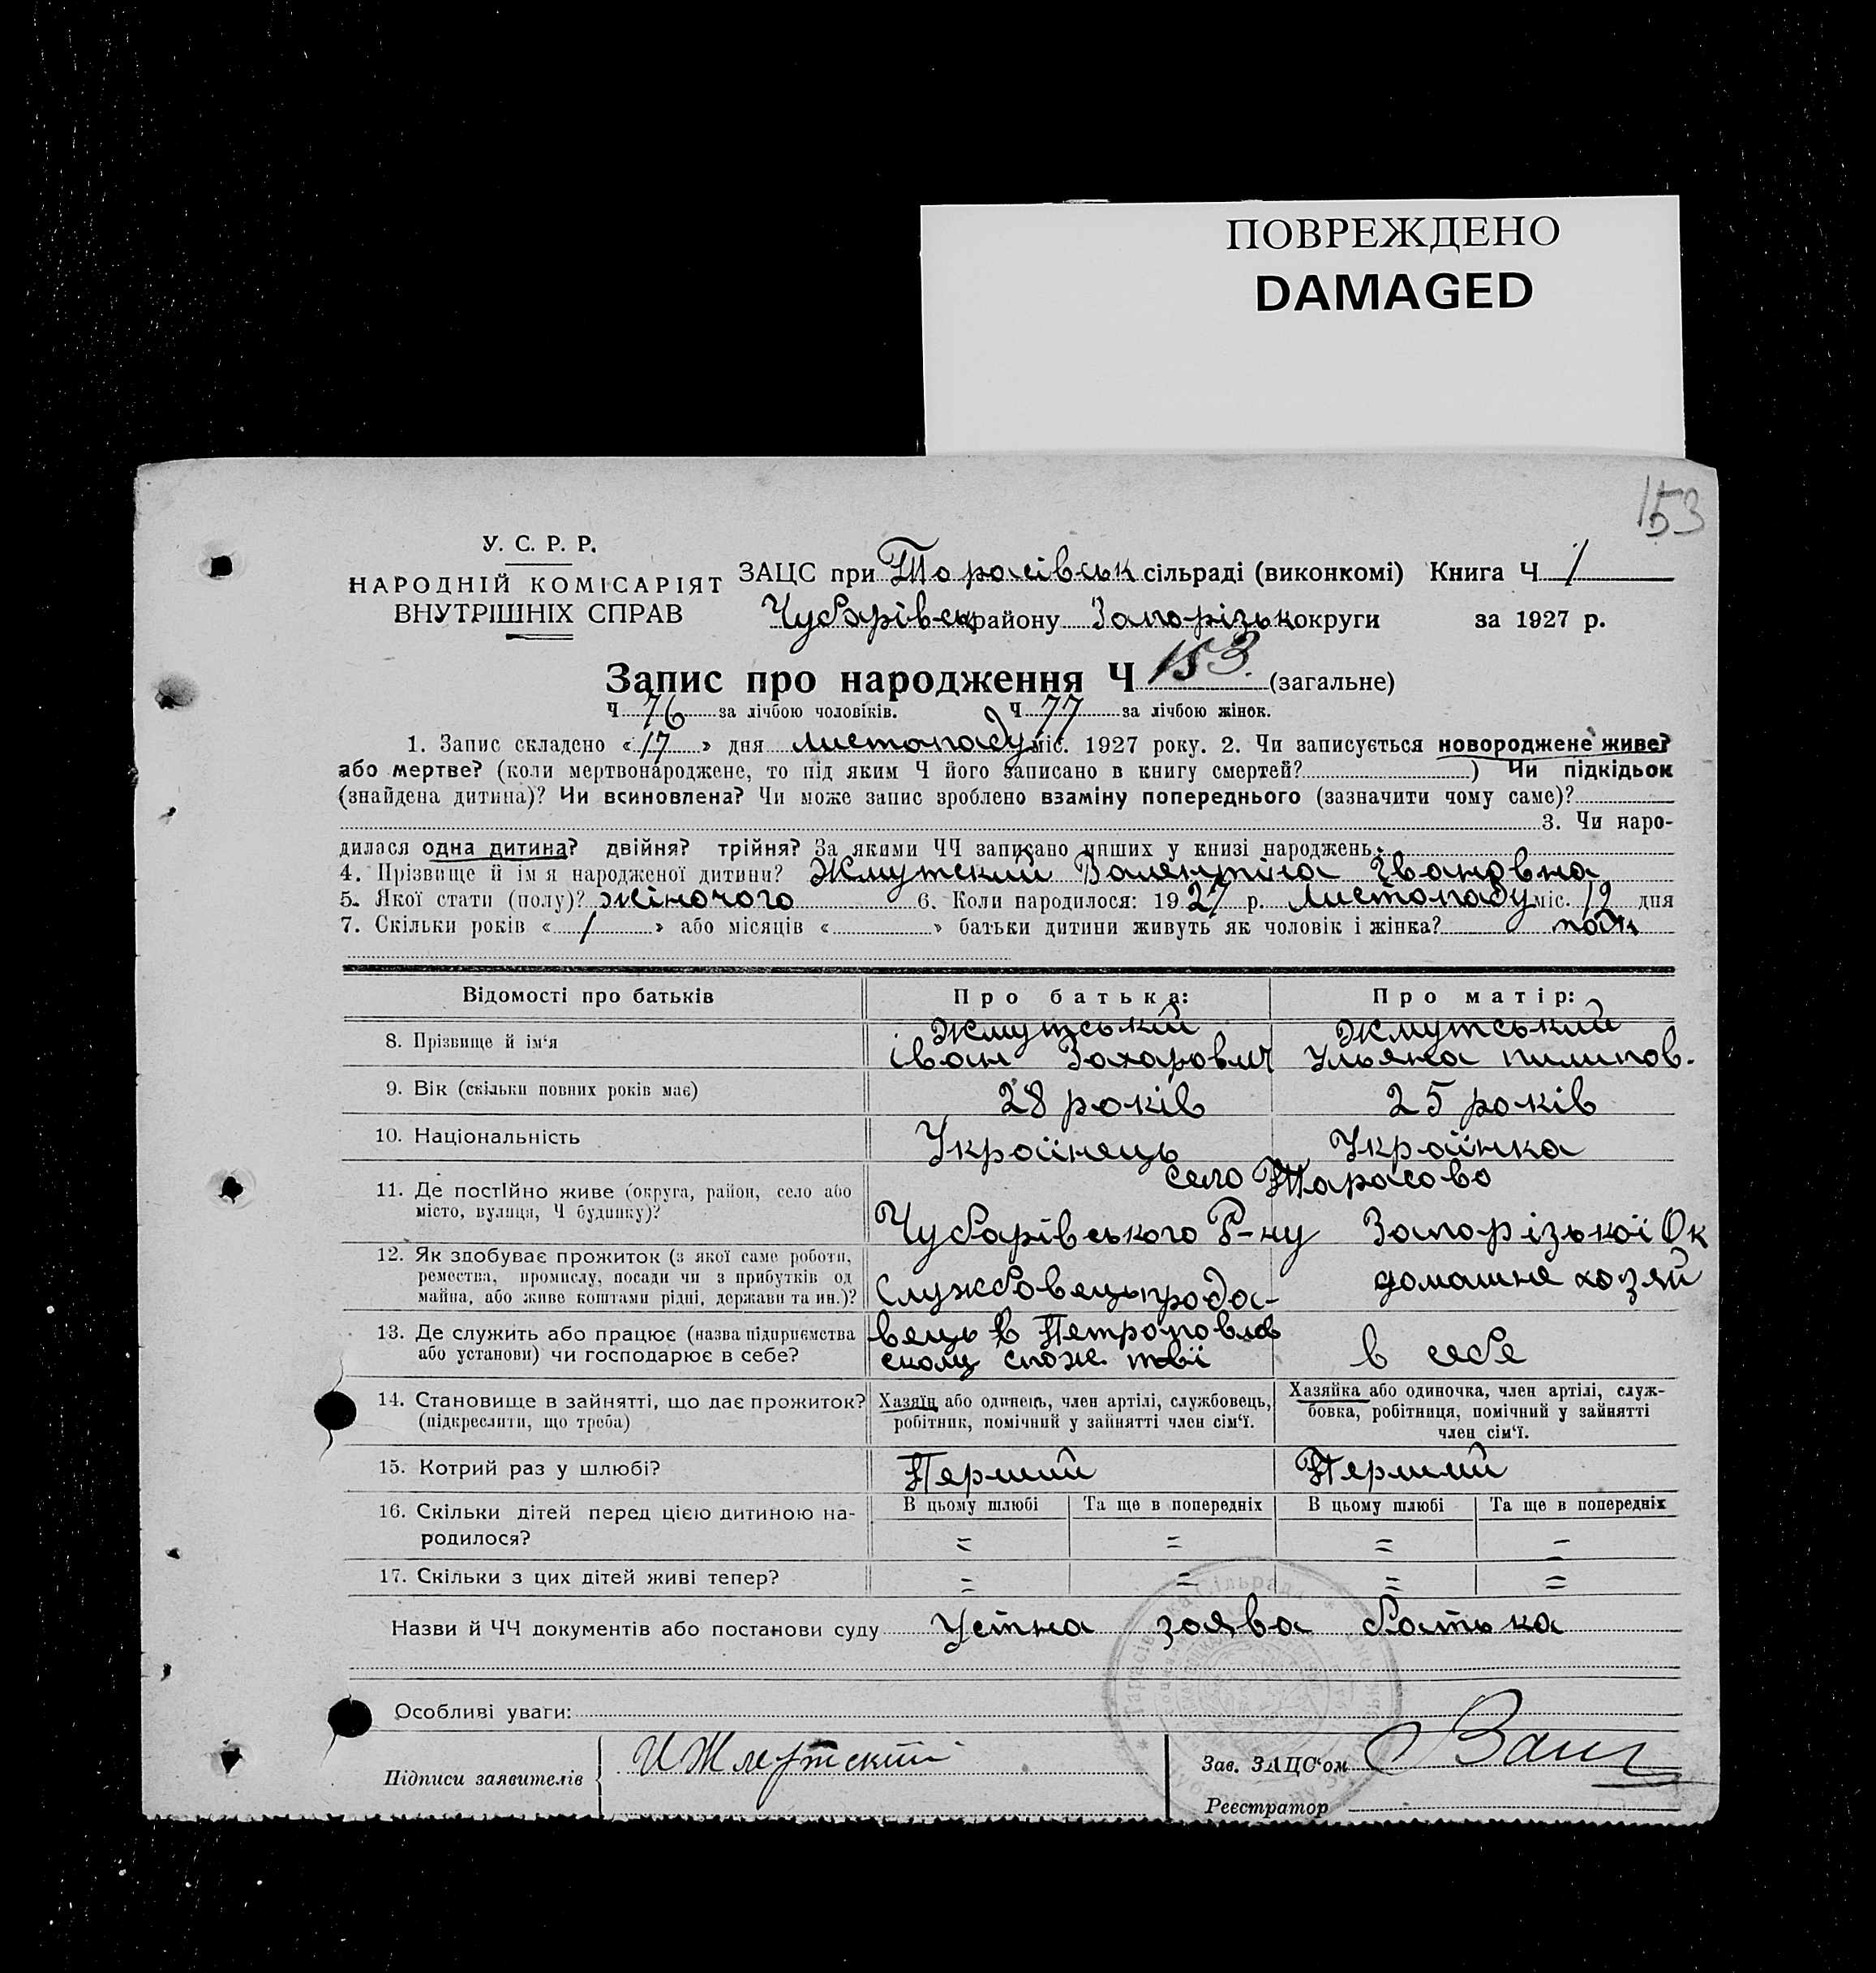 ПОВРЕЖДЕНО
DAMAGED
153
У. С. Р. Р.
НАРОДНІЙ КОМІСАРІЯТ
ВНУТРІШНІХ СПРАВ
ЗАЦС при Тарасівськ сільраді (виконкомі) Книга Ч 1
Чубарівськ району Запорізьк округи за 1927 р.
Запис про народження Ч 153 (загальне)
Ч 76 за лічбою чоловіків. Ч 77 за лічбою жінок.
1. Запис складено «17» дня листопаду міс. 1927 року. 2. Чи записується новороджене живе?
або мертве? (коли мертвонароджене, то під яким Ч його записано в книгу смертей? ) Чи підкідьок
(знайдена дитина)? Чи всиновлена? Чи може запис зроблено взаміну попереднього (зазначити чому саме)?
3. Чи наро-
дилася одна дитина? двійня? трійня? За якими ЧЧ записано инших у книзі народжень
4. Прізвище й ім'я народженої дитини? Жмутский Валентіна Івановна
5. Якої стати (полу)? жіночого 6. Коли народилося: 1927 р. Листопаду міс. 12 дня
7. Скільки років « 1 » або місяців « » батьки дитини живуть як чоловік і жінка?
Відомості про батьків
Про батька:
Про матір:
8. Прізвище й ім'я
Жмутський
Іван Захарович
Жмутський
Ульяна пилипов.
9. Вік (скільки повних років має)
28 років
25 років
10. Національність
Українець
Українка
11. Де постійно живе (округа, район, село або
місто, вулиця, Ч будинку)?
село Тарасово
Чубарівського Р-ну Запорізької Ок
12. Як здобуває прожиток (з якої саме роботи,
ремества, промислу, посади чи з прибутків од
майна, або живе коштами рідні, держави та ин.)?
Службовець прода-
домашня хозяй
13. Де служить або працює (назва підприємства
або установи) чи господарює в себе?
вець в Петропавлов
скому спож. т-ві
в себя
14. Становище в зайнятті, що дає прожиток?
(підкреслити, що треба)
Хазяїн або одинець, член артілі, службовець,
робітник, помічний у зайнятті член сім'ї.
Хазяйка або одиночка, член артілі, служ-
бовка, робітниця, помічний у зайнятті
член сім'ї.
15. Котрий раз у шлюбі?
Перший
Перший
16. Скільки дітей перед цією дитиною на-
родилося?
В цьому шлюбі Та ще в попередніх В цьому шлюбі Та ще в попередніх
= = = =
17. Скільки з цих дітей живі тепер?
= = = =
Назви й ЧЧ документів або постанови суду Устна заява батька
Особливі уваги:
Підписи заявителів
ИЖмутский
Зав. ЗАЦС'ом
Реєстратор